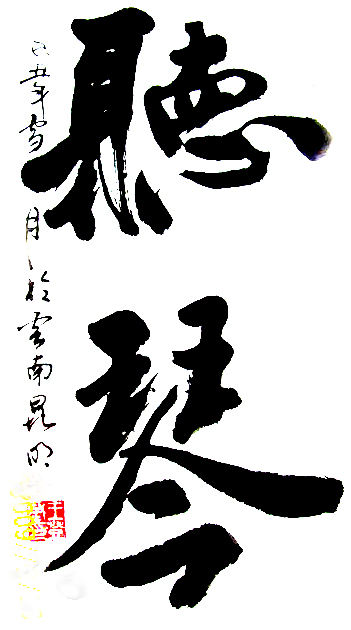 聽
琴
己丑年雪月於雲南昆明